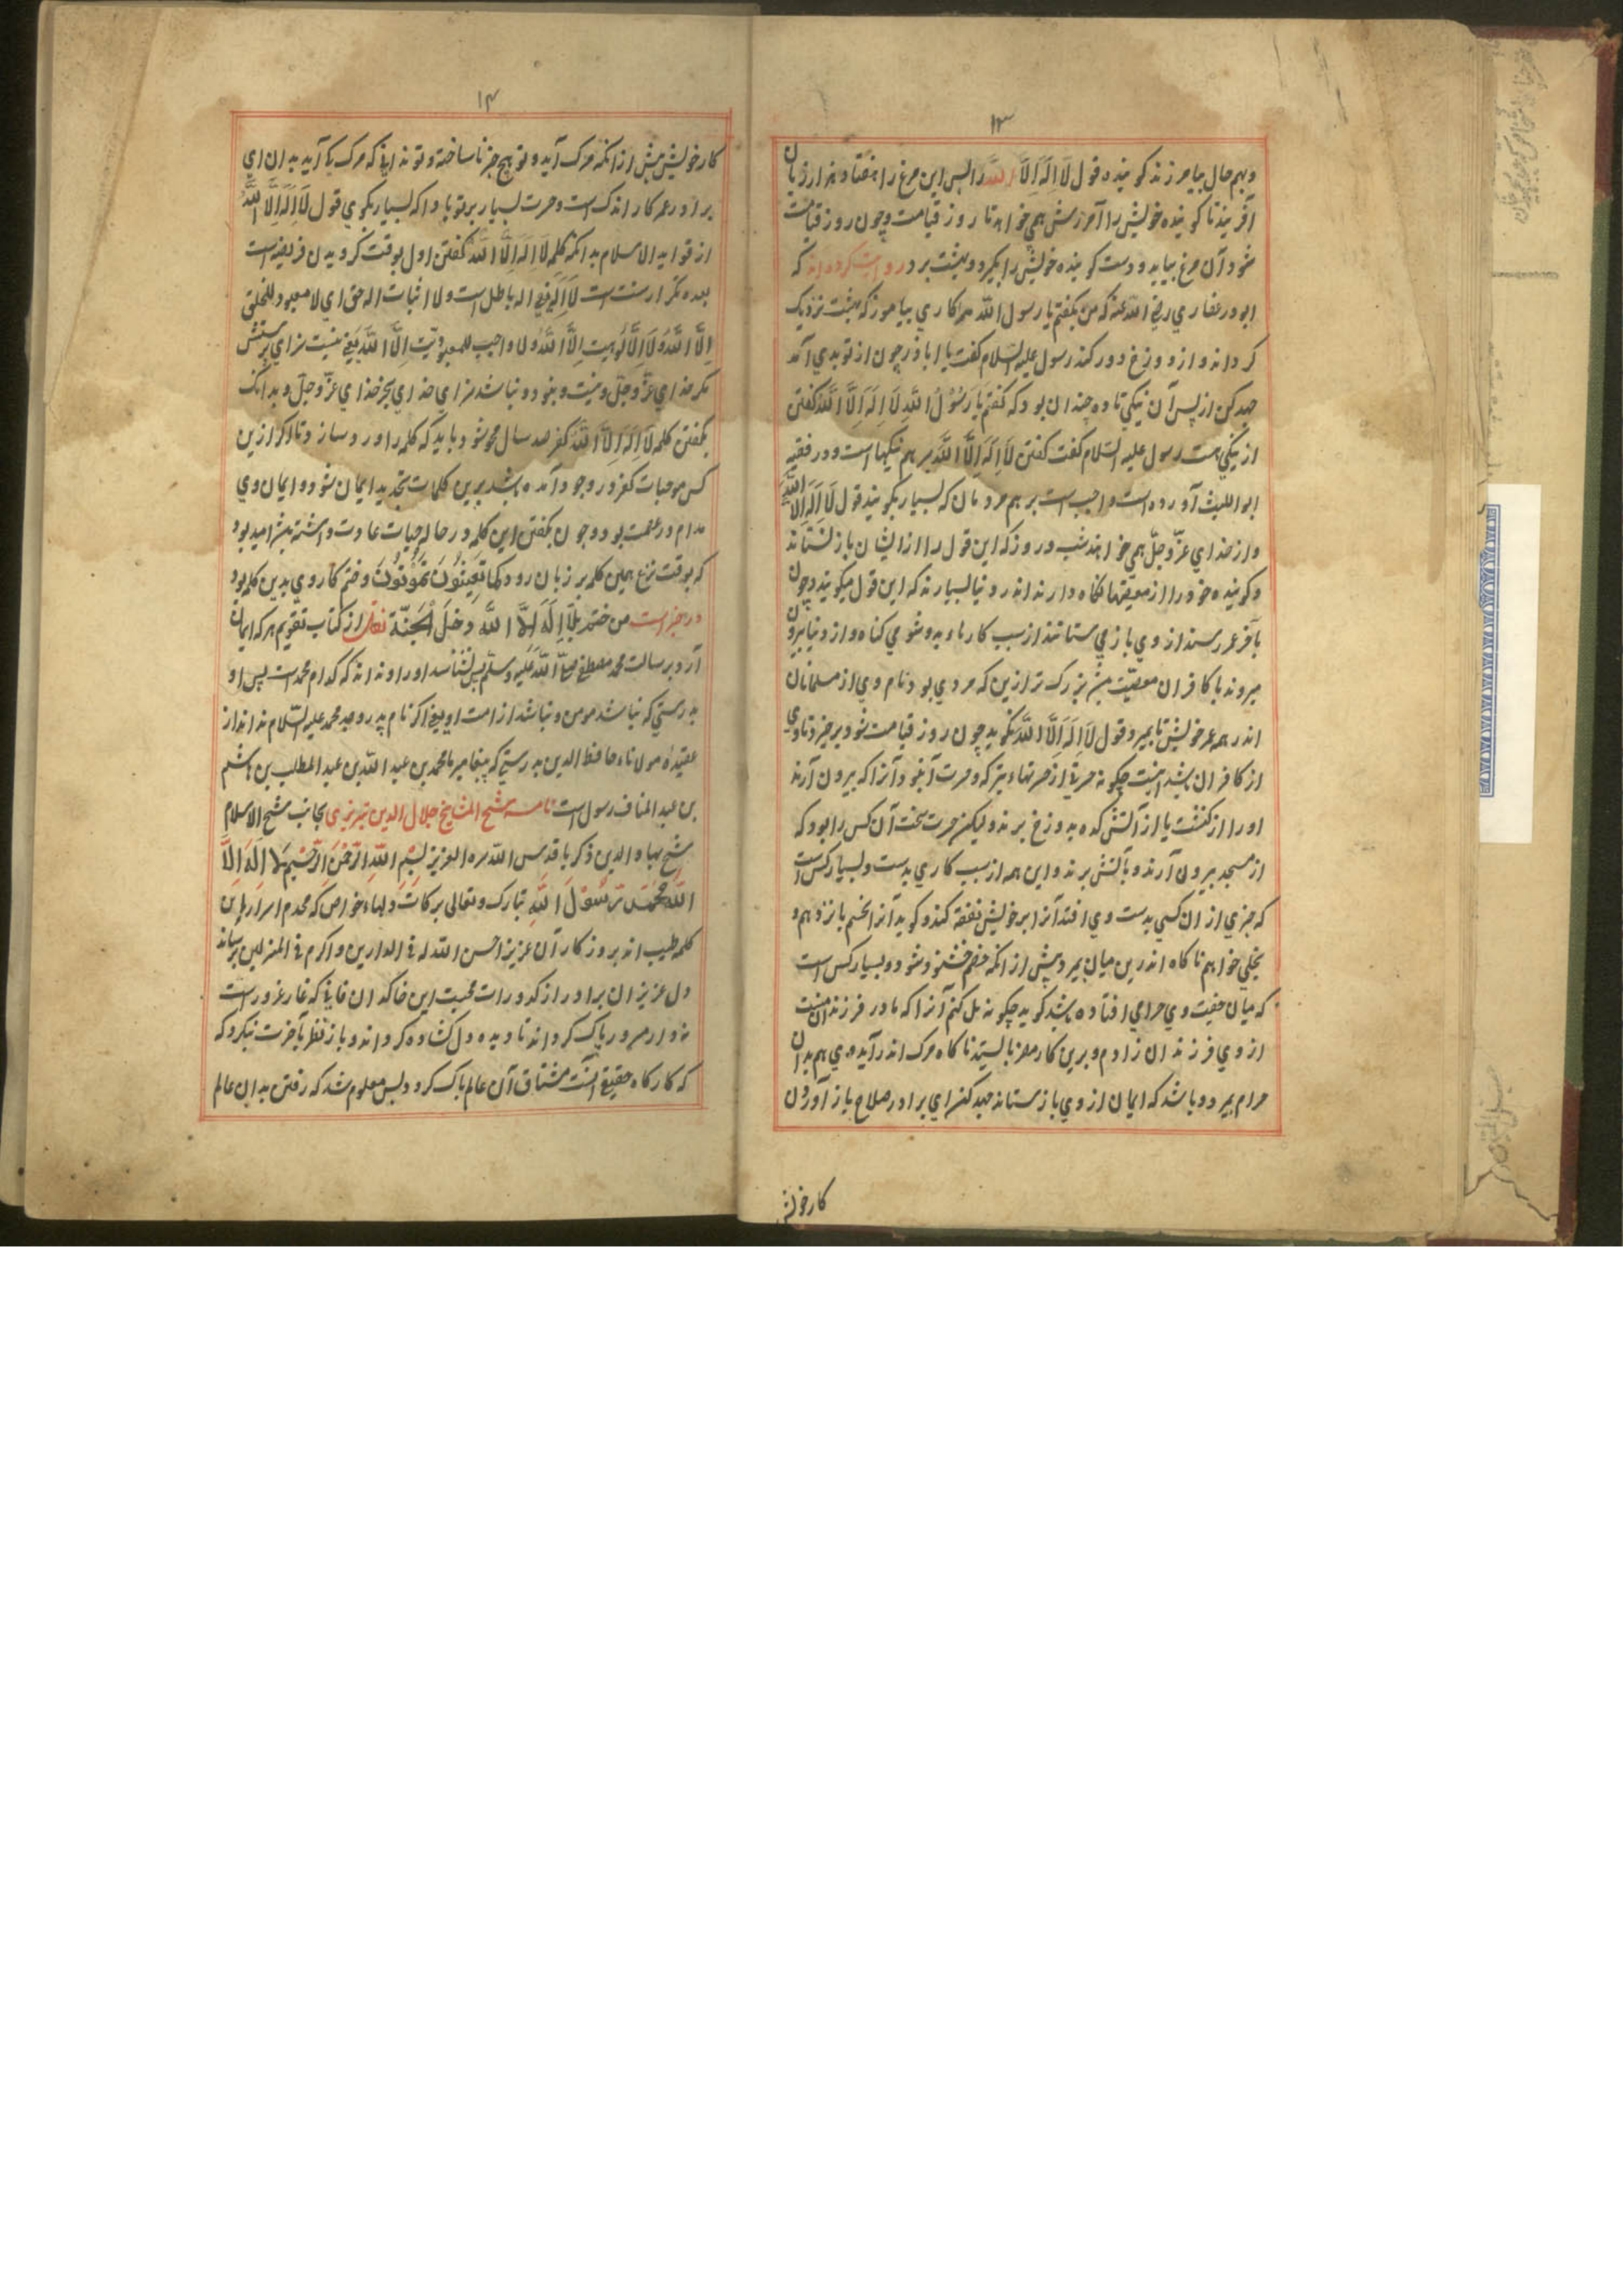 ۱۳
و بهم حال بیامرزند کوینده قول لَا اِلَهَ اِلَّا اللَّهُ را پس این مرغ را هفتاد هزار زبان
آفریند تا کوینده خویش را آمرزش همی خواهد تا روز قیامت و چون روز قیامت
شود آن مرغ بیاید و دست کوینده خویش را بکیرد و ببهشت برد روایت کرده اند که
ابوذر غفاری رضی الله عنه که من بکفتم یا رسول الله مرا کاری بیاموز که ببهشت نزدیک
کرداند و از دوزخ دور کند رسول علیه السلام کفت یا اباذر چون از تو بدی آمد
جهد کن از پس آن نیکی تا ده چندان بود که کفتم یَا رَسُوْلُ اللَّهِ لَا اِلَهَ اِلَّا اللَّهُ کفتن
از نیکی هست رسول علیه السلام کفت کفتن لَا اِلَهَ اِلَّا اللَّهُ بر هم نیکیها است و در فقیه
ابو اللیث آورده است واجب است بر هم مردمان که بسیار بکویند قول لَا اِلَهَ اِلَّا اللَّهُ
و از خدای عزّ وجلّ همی خواهند شب و روز که این قول را از ایشان باز نستاند
و کوینده خود را از معصیتها نکاه دارند اندر دنیا بسیارند که این قول میکویند و چون
بآخر عمر رسند از وی باز می ستانند از سبب کارهاء بد و شومی کناه و از دنیا بیرون
میروند با کافران معصیّت بزرک تر ازین که مردی بود نام وی از مسلمانان
اندر همه عمر خویش تا بمیرد قول لَا اِلَهَ اِلَّا اللَّهُ نکوید چون روز قیامت شود برخیزد نام وی
از کافران باشد اینت چکونه حسرتی از حسرتهاء بتر که حسرت آنبود آنرا که بیرون آرند
او را از کنشت یا از آتش کده بدوزخ برند ولیکن حسرت سخت آن کس را بود که
از مسجد بیرون آرند و بآتش برند و این همه از سبب کاری بدست و بسیار کس است
که چیزی از آن کسی بدست وی افتد آنرا بر خویش نفقه کند و کوید آنرا خصم باز دهم و
بحلی خواهم ناکاه اندرین میان بمیرد پیش از انکه خصم خشنود شود و بسیار کس است
که میان جفت وی حرامی افتاده باشد کوید چکونه یل کنم آنرا که مادر فرزندان منست
از وی فرزندان زادم و برین کار مغز بایستد ناکاه مرک اندر آید وی هم بدان
حرام بمیرد و باشد که ایمان از وی باز ستانند جهد کن ای برادر صلاح باز آوردن
کار خویش
۱۴
کار خویش پیش از انکه مرک آید و تو هیچ چیز ناساخته و تو ندانی که مرک کی آید بدان ای
برادر عمر کار اندک است و حسرت بسیار بر تو باد که بسیار بکوی قول لَا اِلَهَ اِلَّا اللَّهُ
از فواید الاسلام بدانکه کلمه لَا اِلَهَ اِلَّا اللَّهُ کفتن اول بوقت کرویدن فریضه است
بعده تکرار سنت است لَا اِلَهَ نفی اله باطل است و اِلا اثبات اله حق ای لا معبود للخلق
اِلَّا اللَّهُ وَلَا اِلَّا لُوهیت اِلَّا اللَّهُ ولا واجب للمعبودیّت اِلَّا اللَّهُ یعنی نیست سزای پرستش
مکر خدای عزّ وجلّ و نیست و نبود و نباشد سزای خدای بجز خدای عزّ وجلّ و بدانک
بکفتن کلمه لَا اِلَهَ اِلَّا اللَّهُ کفر صد سال محو شود باید که کلمه را ورد سازد تا اکر ازین
کس موجبات کفر در وجود آمده باشد برین کلمات تجدید ایمان شود و ایمان وی
مدام در عصمت بود و چون بکفتن این کلمه در حالت حیات عادت داشته بیش امید بود
که بوقت نزع همین کلمه بر زبان رود کَمَا تَعِیْشُوْنَ تَمُوْتُوْنَ و ختم کار وی بدین کلمه بود
در خبر است من ختم بِلَا اِلَهَ اِلَّا اللَّهَ دَخَلَ الْجَنَّةَ نقل از کتاب تقویم هر که ایمان
آرد برسالت محمد مصطفی صلّی اللّه علیه وسلّم پس نشناسد او را و نداند که کدام محمد است پس او
بدرستی که نباشد مومن و نباشد از امت او یعنی اکر نام پدر و جد محمد علیه السّلام نداند از
عقیدهٔ مولاناء حافظ الدین بدرستی که پیغامبر ما محمد بن عبد اللّه بن عبد المطلب بن هاشم
بن عبد المناف رسول است نامه شیخ المشایخ جلال الدین تبریزی بجانب شیخ الاسلام
شیخ بهاء الدین ذکریا قدس اللّه سره العزیز بِسْمِ اللَّهِ الرَّحْمَنِ الرَّحِیْمِ لَا اِلَهَ اِلَّا
اللَّهُ مُحَمَّدٌ رَّسُوْلُ اللَّهِ تبارک و تعالی برکات دلهاء خواص که محرم اسرار این
کلمه طیب اند بروزکار آن عزیز احسن اللّه له فی الدارین و اکرم فی المنزلین برساند
دل عزیز ان برادر از کدورات محبت این خاکدان فانی که غار غرور است
نه دار سرور پاک کرداند تا دیده دل کشاده کرداند و باز نظر بآخرت نیکرد که
که کارکاه حقیقی آنست مشتاق آن عالم پاک کردد و پس معلوم شد که رفتن بدان عالم